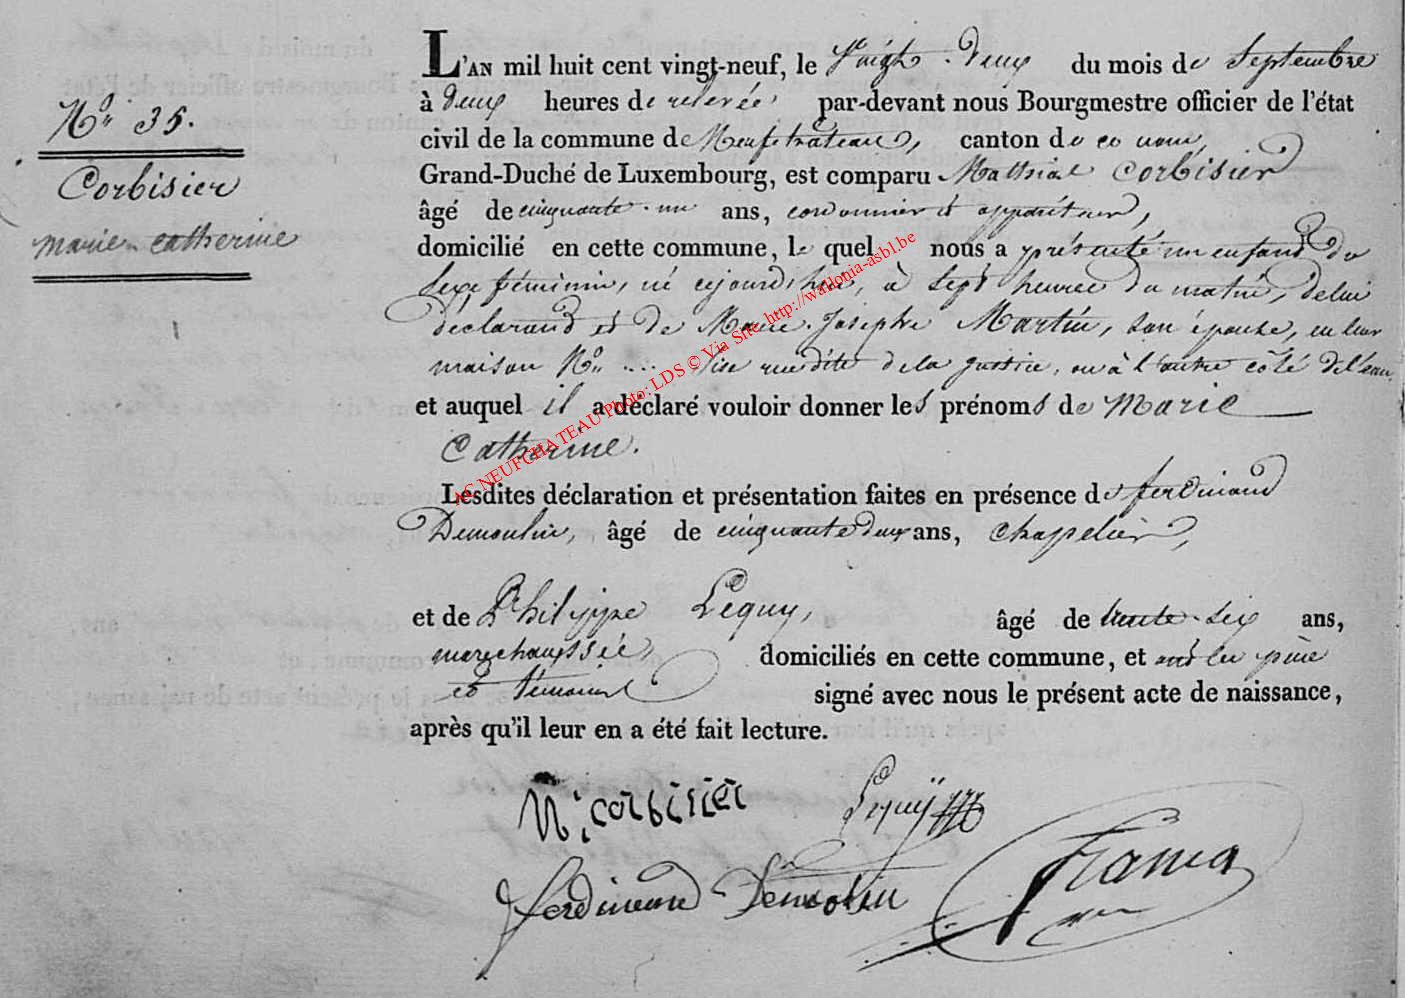 N.° 35.
Corbisier
marie-catherine
L'AN mil huit cent vingt-neuf, le Vingt-Deux du mois de Septembre
à Deux heures de relevée, par-devant nous Bourgmestre officier de l'état
civil de la commune de Neufchateau, canton de ce nom,
Grand-Duché de Luxembourg, est comparu Mathias Corbisier
âgé de cinquante-un ans, cordonnier et appariteur,
domicilié en cette commune, le quel nous a présenté un enfant du
Sexe féminin, né cejourd'hui, à Sept heures du matin, de lui
déclarant et de Marie-Josephe Martin, son épouse, en leur
maison N.° .... Sise rue dite de la justice, ou à l'autre côté de l'eau,
et auquel il a déclaré vouloir donner les prénoms de Marie
Catherine.
Lesdites déclaration et présentation faites en présence de ferdinand
Demoulin, âgé de cinquante deux ans, chapelier,
et de Philippe Lequy, âgé de trente-six ans,
marechaussée, domiciliés en cette commune, et ont les père
et témoins signé avec nous le présent acte de naissance,
après qu'il leur en a été fait lecture.
M. corbisier Lequÿ
ferdinand Demolin
AC NEUFCHATEAU Photo: LDS © Via Site http://wallonia-asbl.be